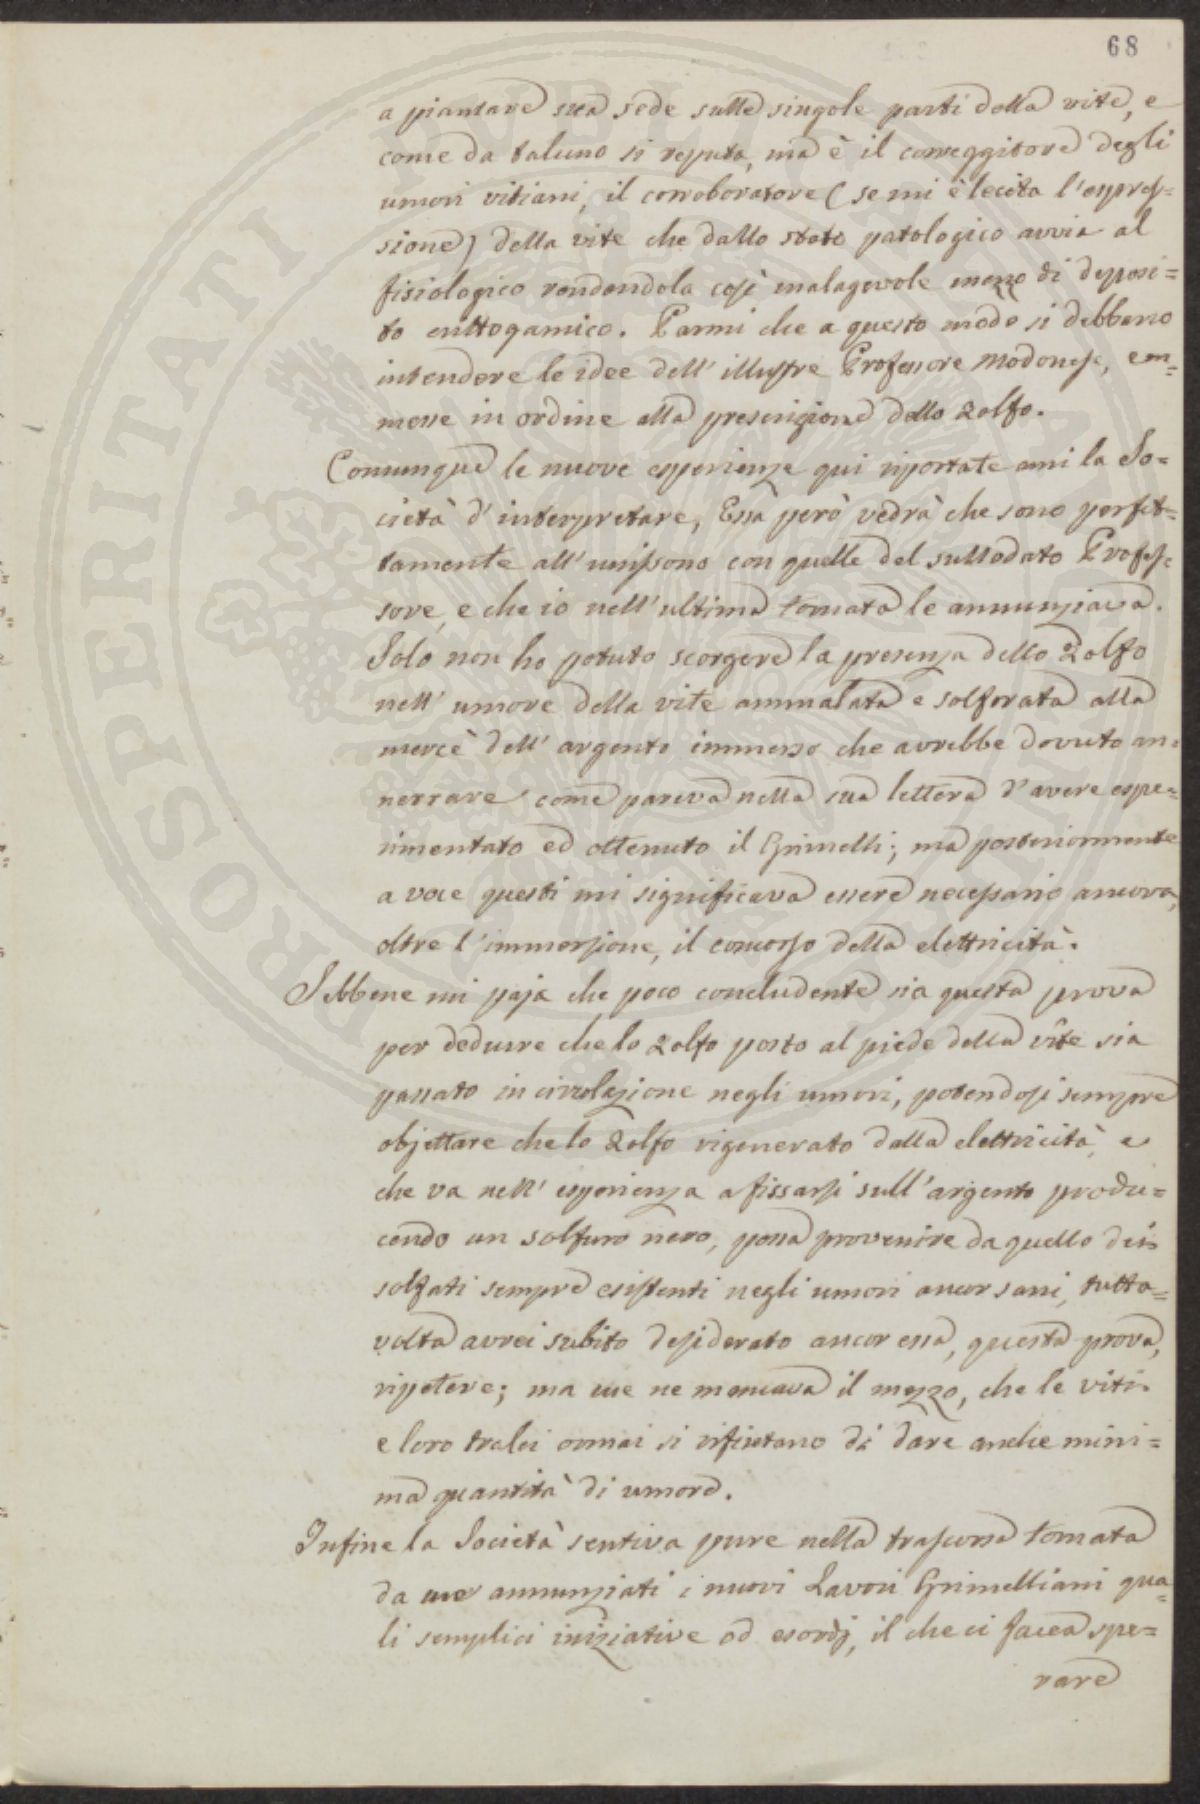 68
a piantare sua sede sulle singole parti della vite, e
come da taluno si reputa, ma è il correggitore degli
umori vitiani, il corroboratore (se mi è lecita l'espres=
sione) della vite che dallo stato patologico avvia al
fisiologico rendendola così malagevole mezzo di deposi=
to crittogamico. Parmi che a questo modo si debbano
intendere le idee dell'illustre Professore Modonese, em=
messe in ordine alla prescrizione dello Zolfo.
Comunque le nuove esperienze qui riportate ami la So=
cietà d'interpretare, Essa però vedrà che sono perfet=
tamente all'unissono con quelle del sullodato Profes=
sore, e che io nell'ultima tornata le annunziava.
Solo non ho potuto scorgere la presenza dello Zolfo
nell'umore della vite ammalata e solforata alla
mercè dell'argento immerso che avrebbe dovuto an=
nerrare come pareva nella sua lettera d'avere espe=
rimentato ed ottenuto il Grimelli; ma posteriormente
a voce questi mi significava essere necessario ancora,
oltre l'immersione, il concorso della elettricità.
Sebbene mi paja che poco concludente sia questa prova
per dedurre che lo Zolfo posto al piede della vite sia
passato in circolazione negli umori, potendosi sempre
objettare che lo Zolfo rigenerato dalla elettricità, e
che va nell'esperienza a fissarsi sull'argento produ=
cendo un solfuro nero, possa provenire da quello dei
solfati sempre esistenti negli umori ancor sani, tutta=
volta avrei subito desiderato ancor essa, questa prova,
ripetere; ma me ne mancava il mezzo, che le viti
e loro tralci ormai si rifiutano di dare anche mini=
ma quantità di umore.
Infine la Società sentiva pure nella trascorsa tornata
da me annunziati i nuovi Lavori Grimelliani qua=
li semplici iniziative od esordj, il che ci facea spe=
rare
PROSPERITATI PUBLICAE AUGENDAE